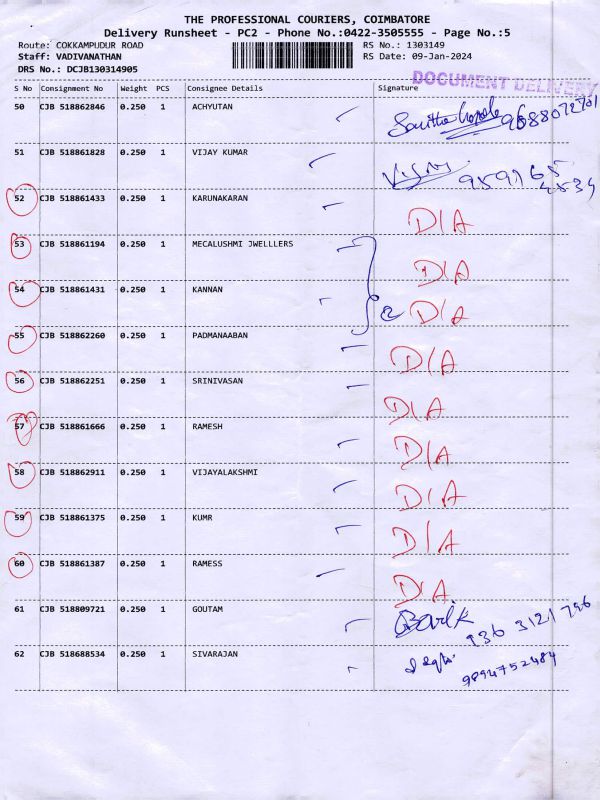 THE PROFESSIONAL COURIERS, COIMBATORE
Delivery Runsheet - PC2 - Phone No.:0422-3505555 - Page No.:5
Route: COKKAMPUDUR ROAD RS No.: 1303149
Staff: VADIVANATHAN RS Date: 09-Jan-2024
DRS No.: DCJB130314905
DOCUMENT DELIVERY
S No Consignment No Weight PCS Consignee Details Signature
50 CJB 518862846 0.250 1 ACHYUTAN
51 CJB 518861828 0.250 1 VIJAY KUMAR
52 CJB 518861433 0.250 1 KARUNAKARAN D/A
53 CJB 518861194 0.250 1 MECALUSHMI JWELLLERS D/A
54 CJB 518861431 0.250 1 KANNAN D/A
55 CJB 518862260 0.250 1 PADMANAABAN D/A
56 CJB 518862251 0.250 1 SRINIVASAN D/A
57 CJB 518861666 0.250 1 RAMESH D/A
58 CJB 518862911 0.250 1 VIJAYALAKSHMI D/A
59 CJB 518861375 0.250 1 KUMR D/A
60 CJB 518861387 0.250 1 RAMESS D/A
61 CJB 518809721 0.250 1 GOUTAM
62 CJB 518688534 0.250 1 SIVARAJAN 9894752484